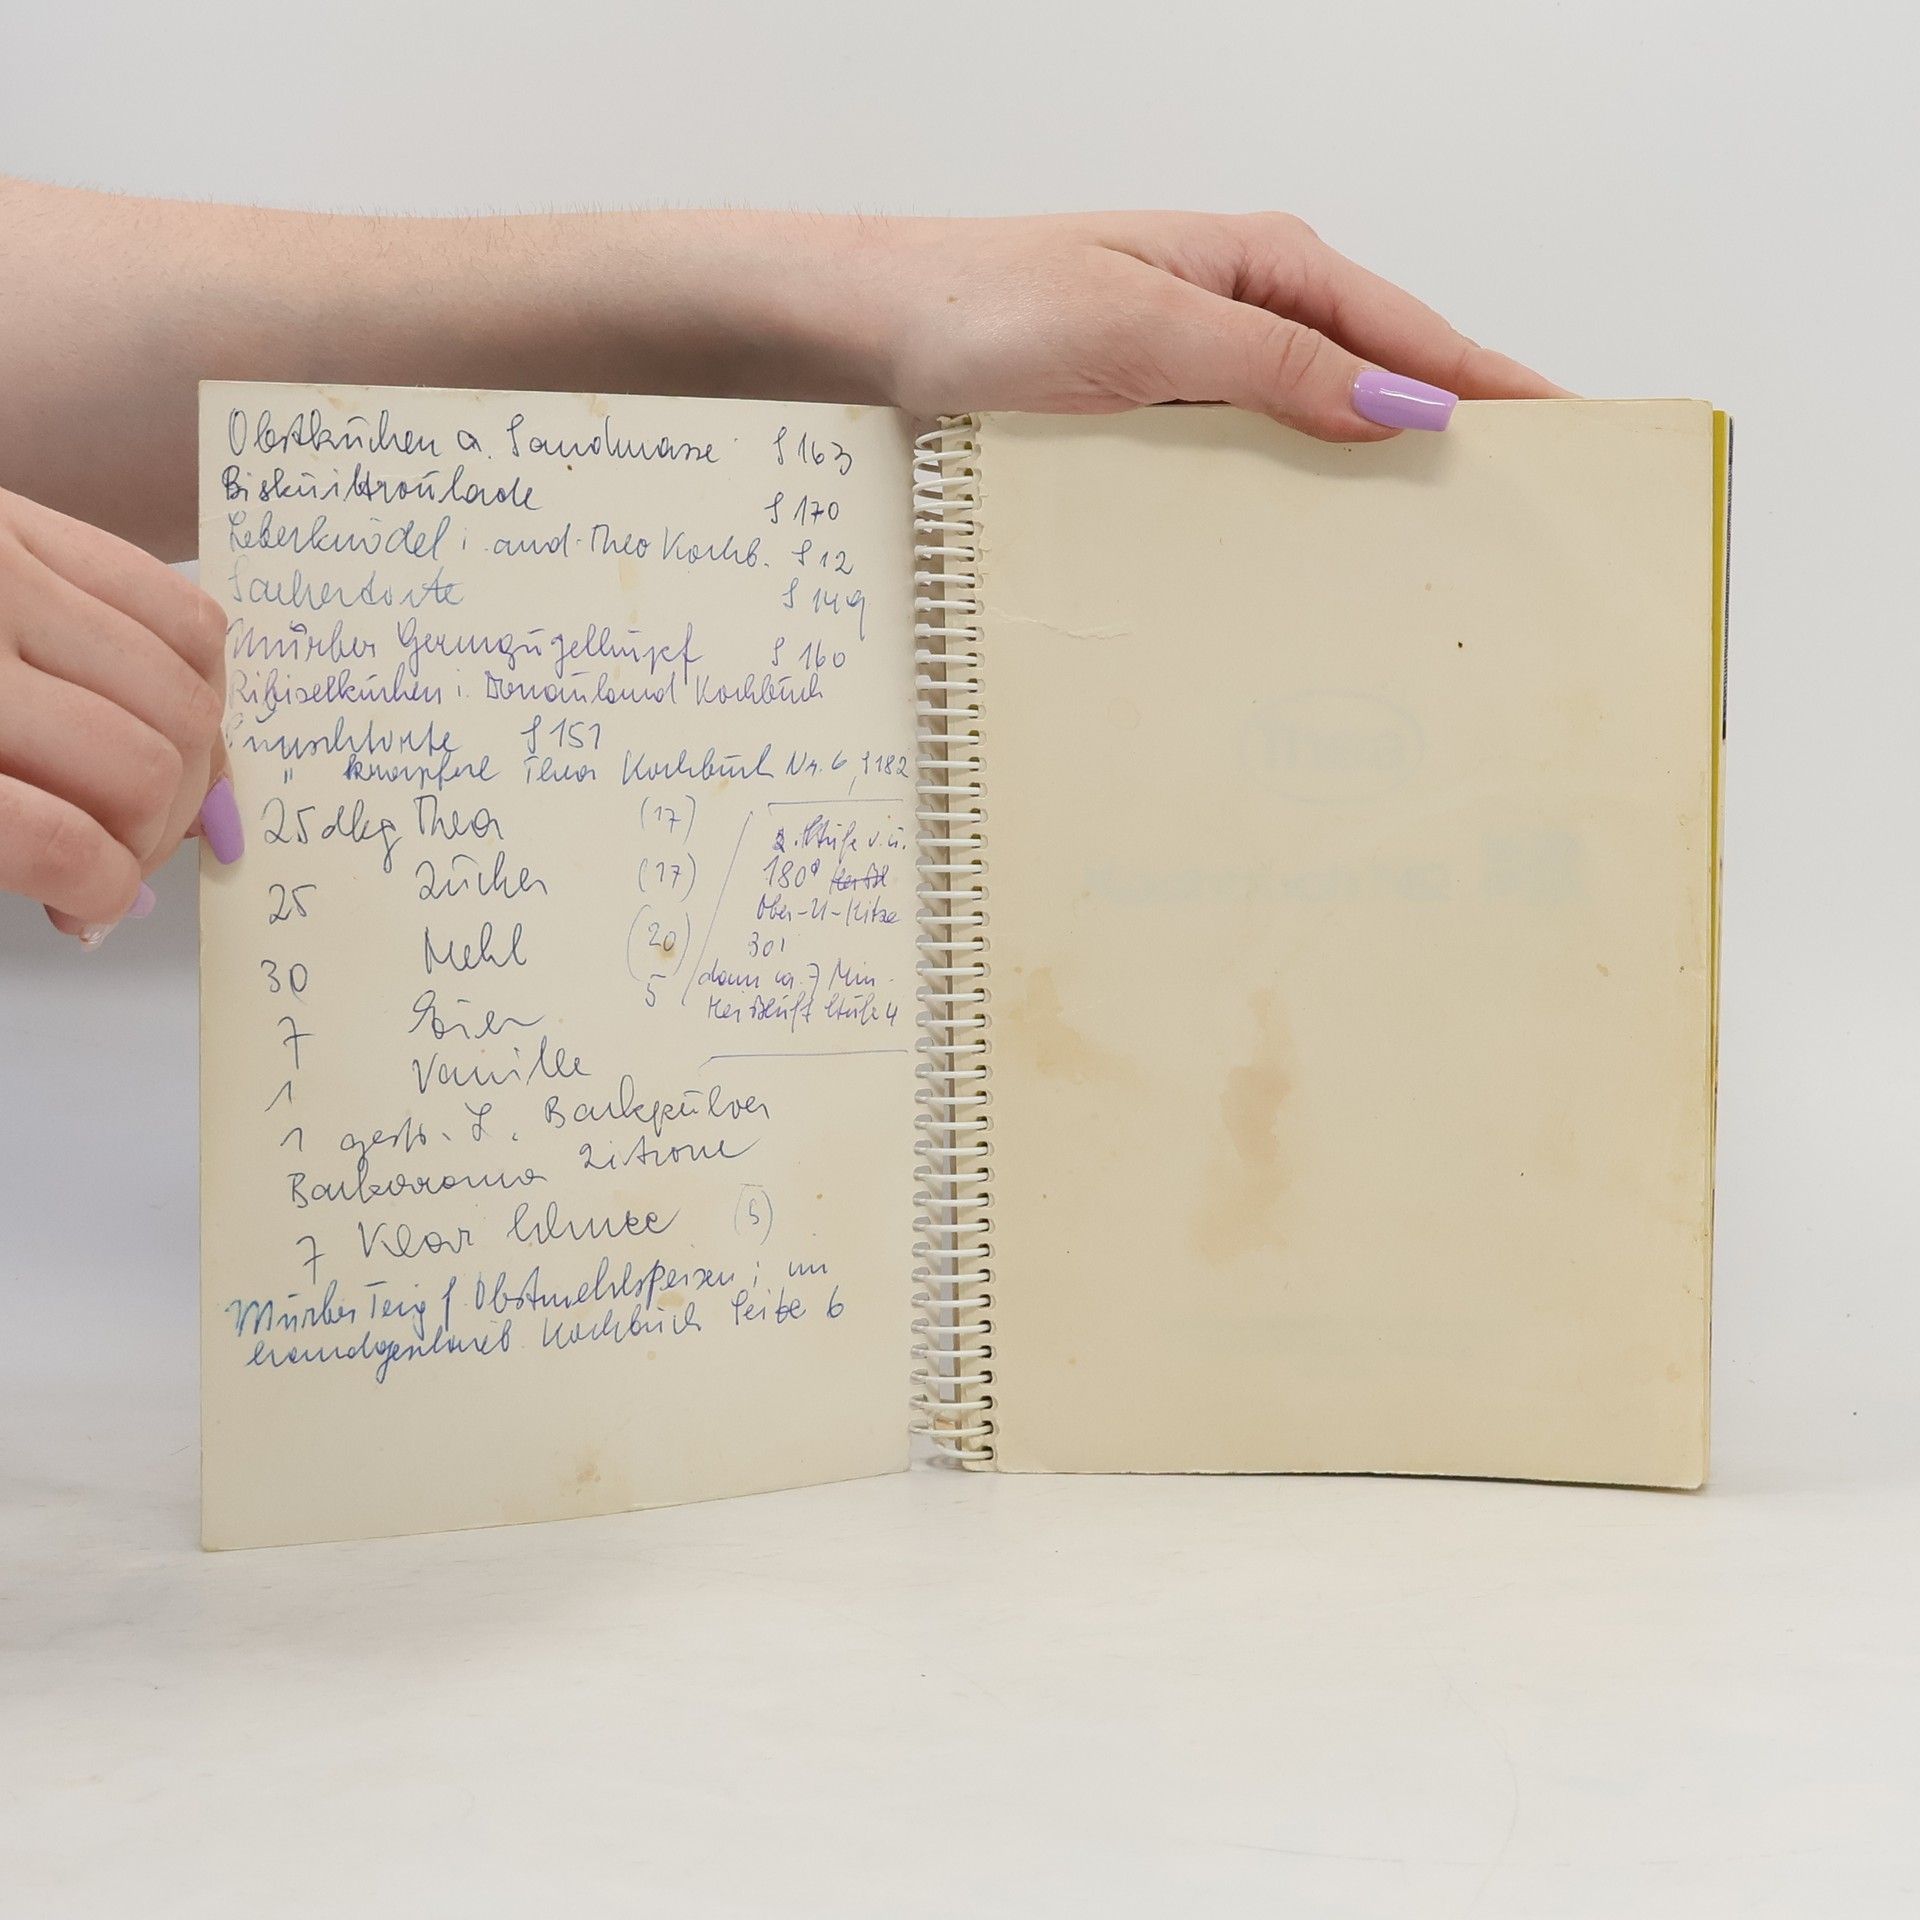 Obstkuchen a. Sandmasse S 163
Biskuittroulade S 170
Leberknödel i. and. Theo Kochb. S 12
Sachertorte S 149
Mürber Germgugelhupf S 160
Ribiselkuchen i. Donauland Kochbuch
Punschtorte S 151
" krapferl Thea Kochbuch Nr. 6, S 182
25 dkg Thea (17)
25 Zucker (17)
30 Mehl (20)
7 Eier 5
1 Vanille
1 gestr. L. Backpulver
Backaroma Zitrone
7 Klar Schnee (5)
2. Stufe v. u.
180°
Ober-U-Hitze
30'
dann ca. 7 Min.
Heißluft Stufe 4
Mürber Teig f. Obstmehlspeisen; im
handgeschrieb. Kochbuch Seite 6